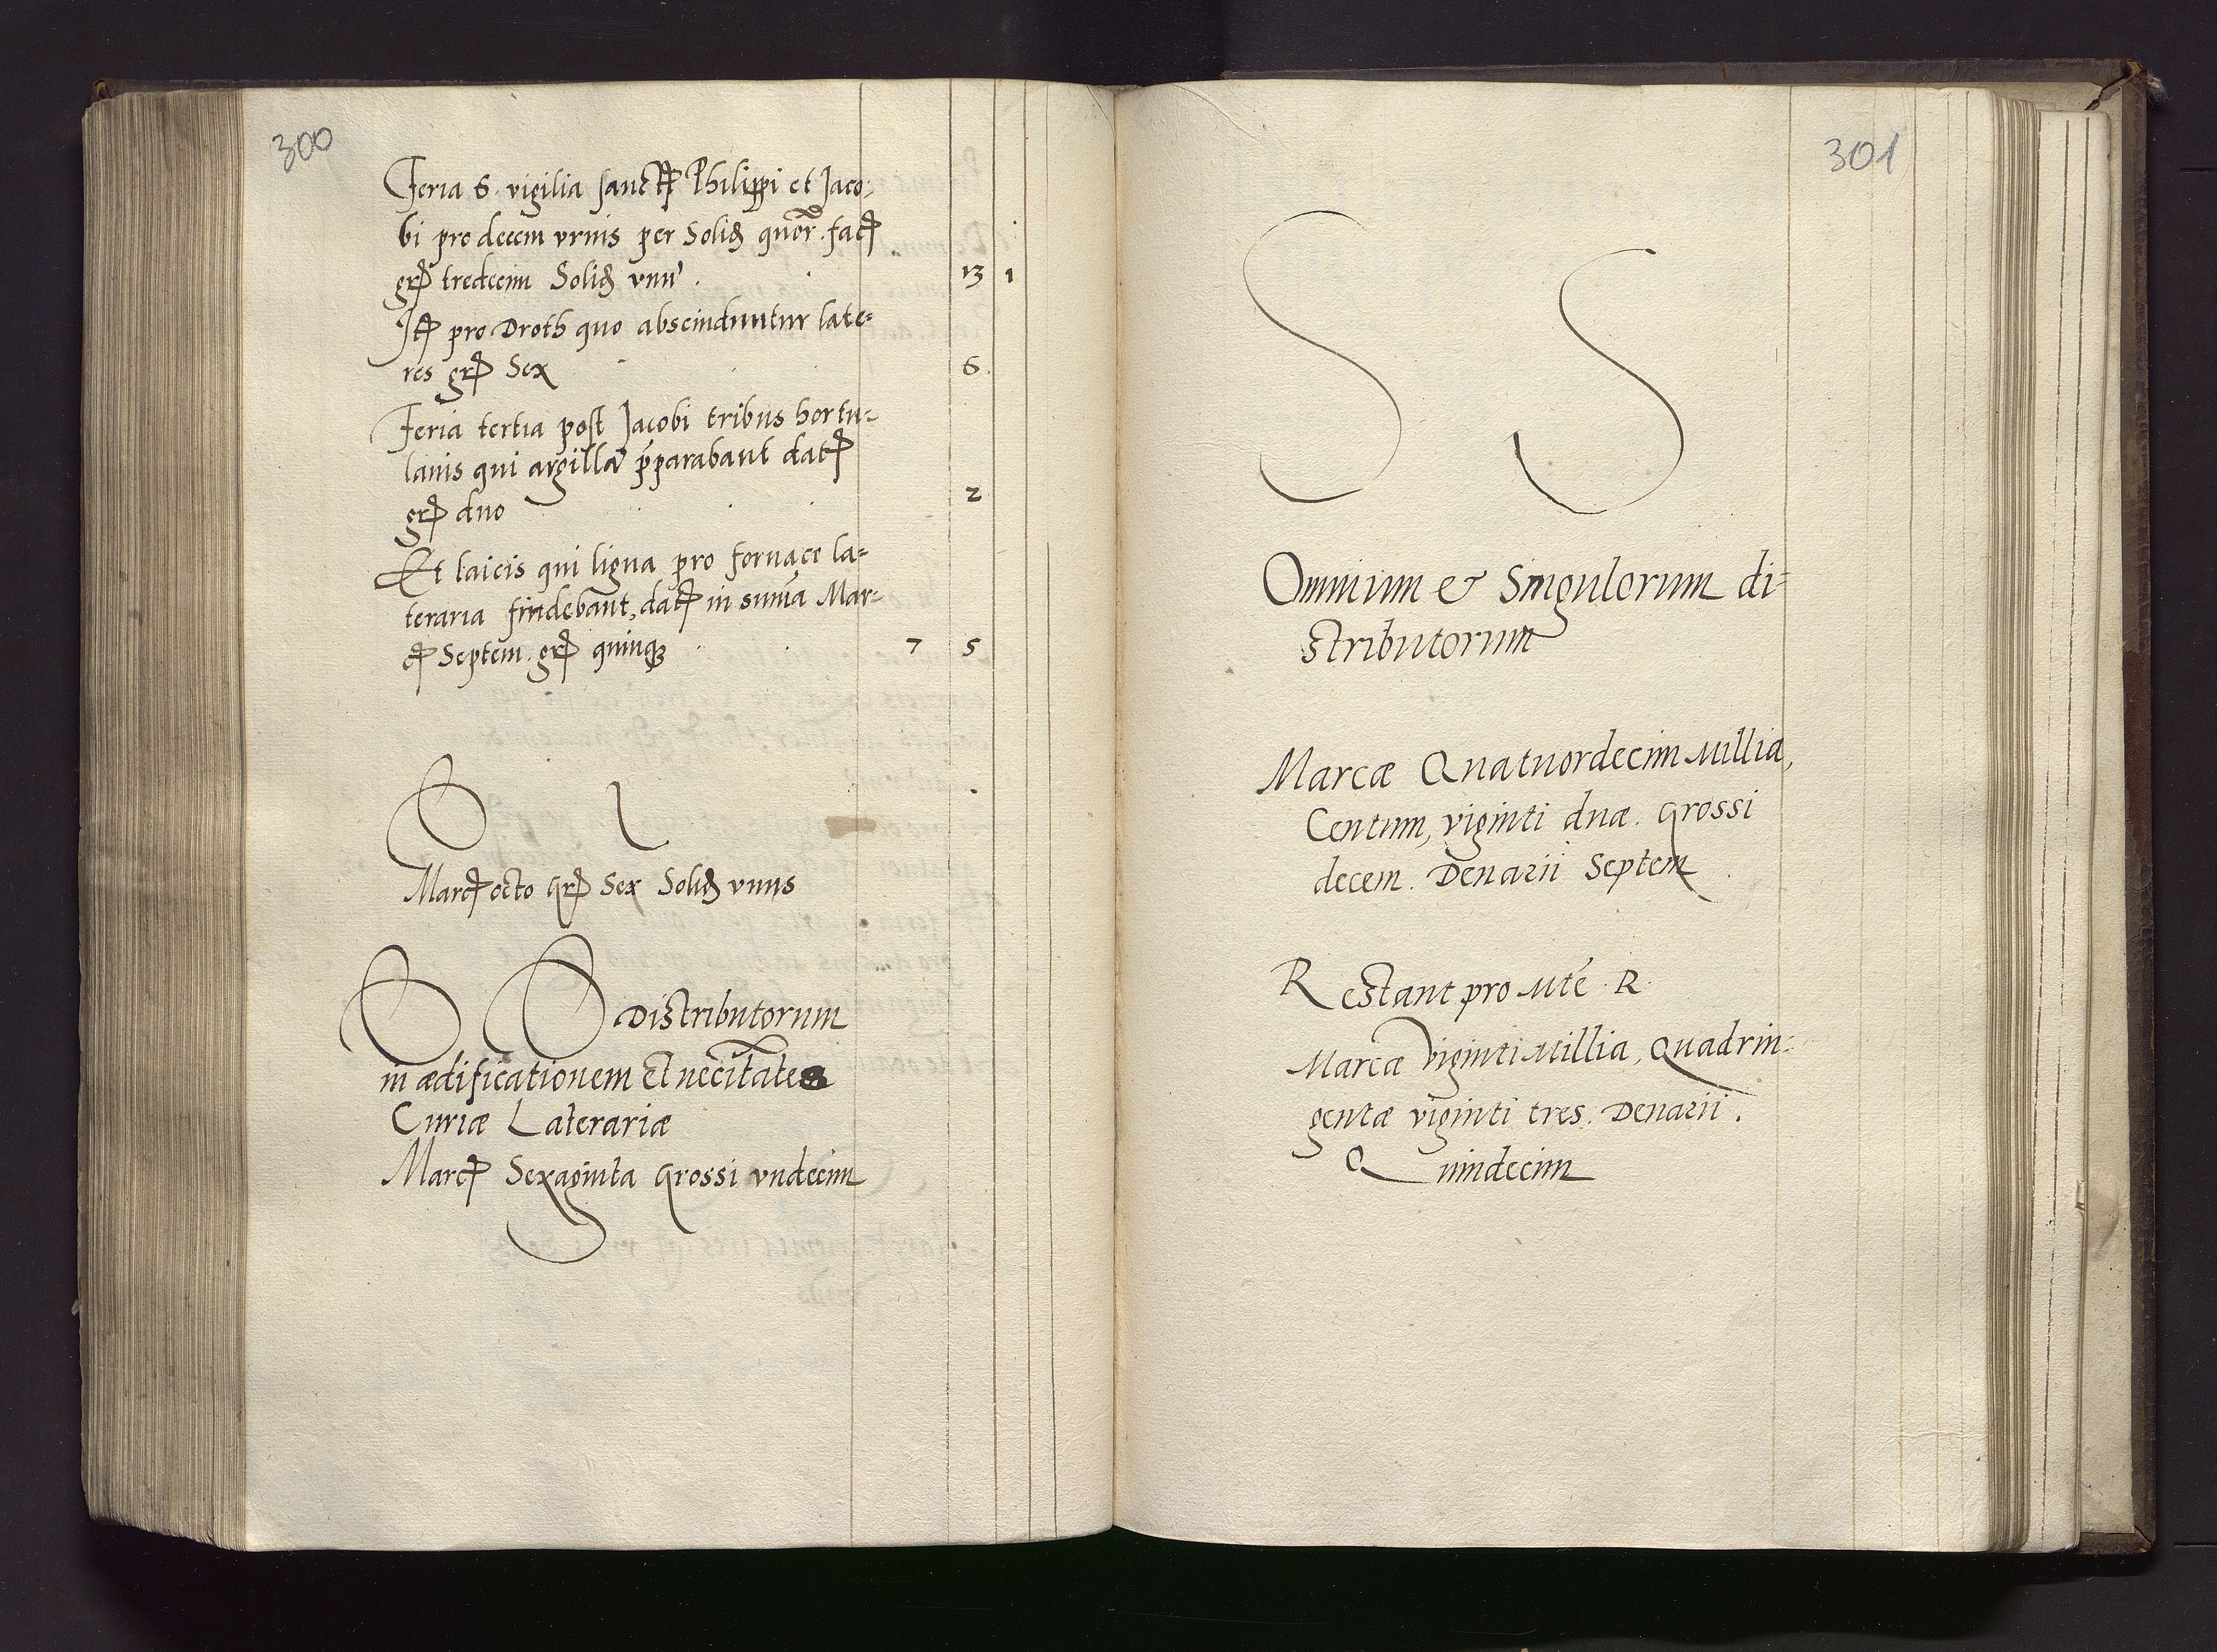 300
Feria 6. vigilia sanct Philippi et Jaco:
bi pro decem vrnis per Solid quor. fact
gr tredecim Solid vnu . 13 1
It pro Droth quo abscinduntur late=
res gr Sex 6
Feria tertia post Jacobi tribus hortu=
lanis qui argilla pparabant dat
gr duo 2
Et laicis qui ligna pro fornace la=
teraria findebant, dat in suma Mar=
c Septem gr quinq 7 5
L
Marc octo gr Sex Solid vnus
Distributorum
in ædificationem et necitate
Curiæ Laterariæ
Marc Sexaginta Grossi vndecim
301
S S
Omnium & Singulorum di=
stributorum
Marcæ Quatuordecim Millia,
Centum, viginti duæ. Grossi
decem. Denarii Septem
Restant pro Mte. R.
Marcæ viginti Millia, Quadrin=
gentæ viginti tres. Denarii.
Quindecim